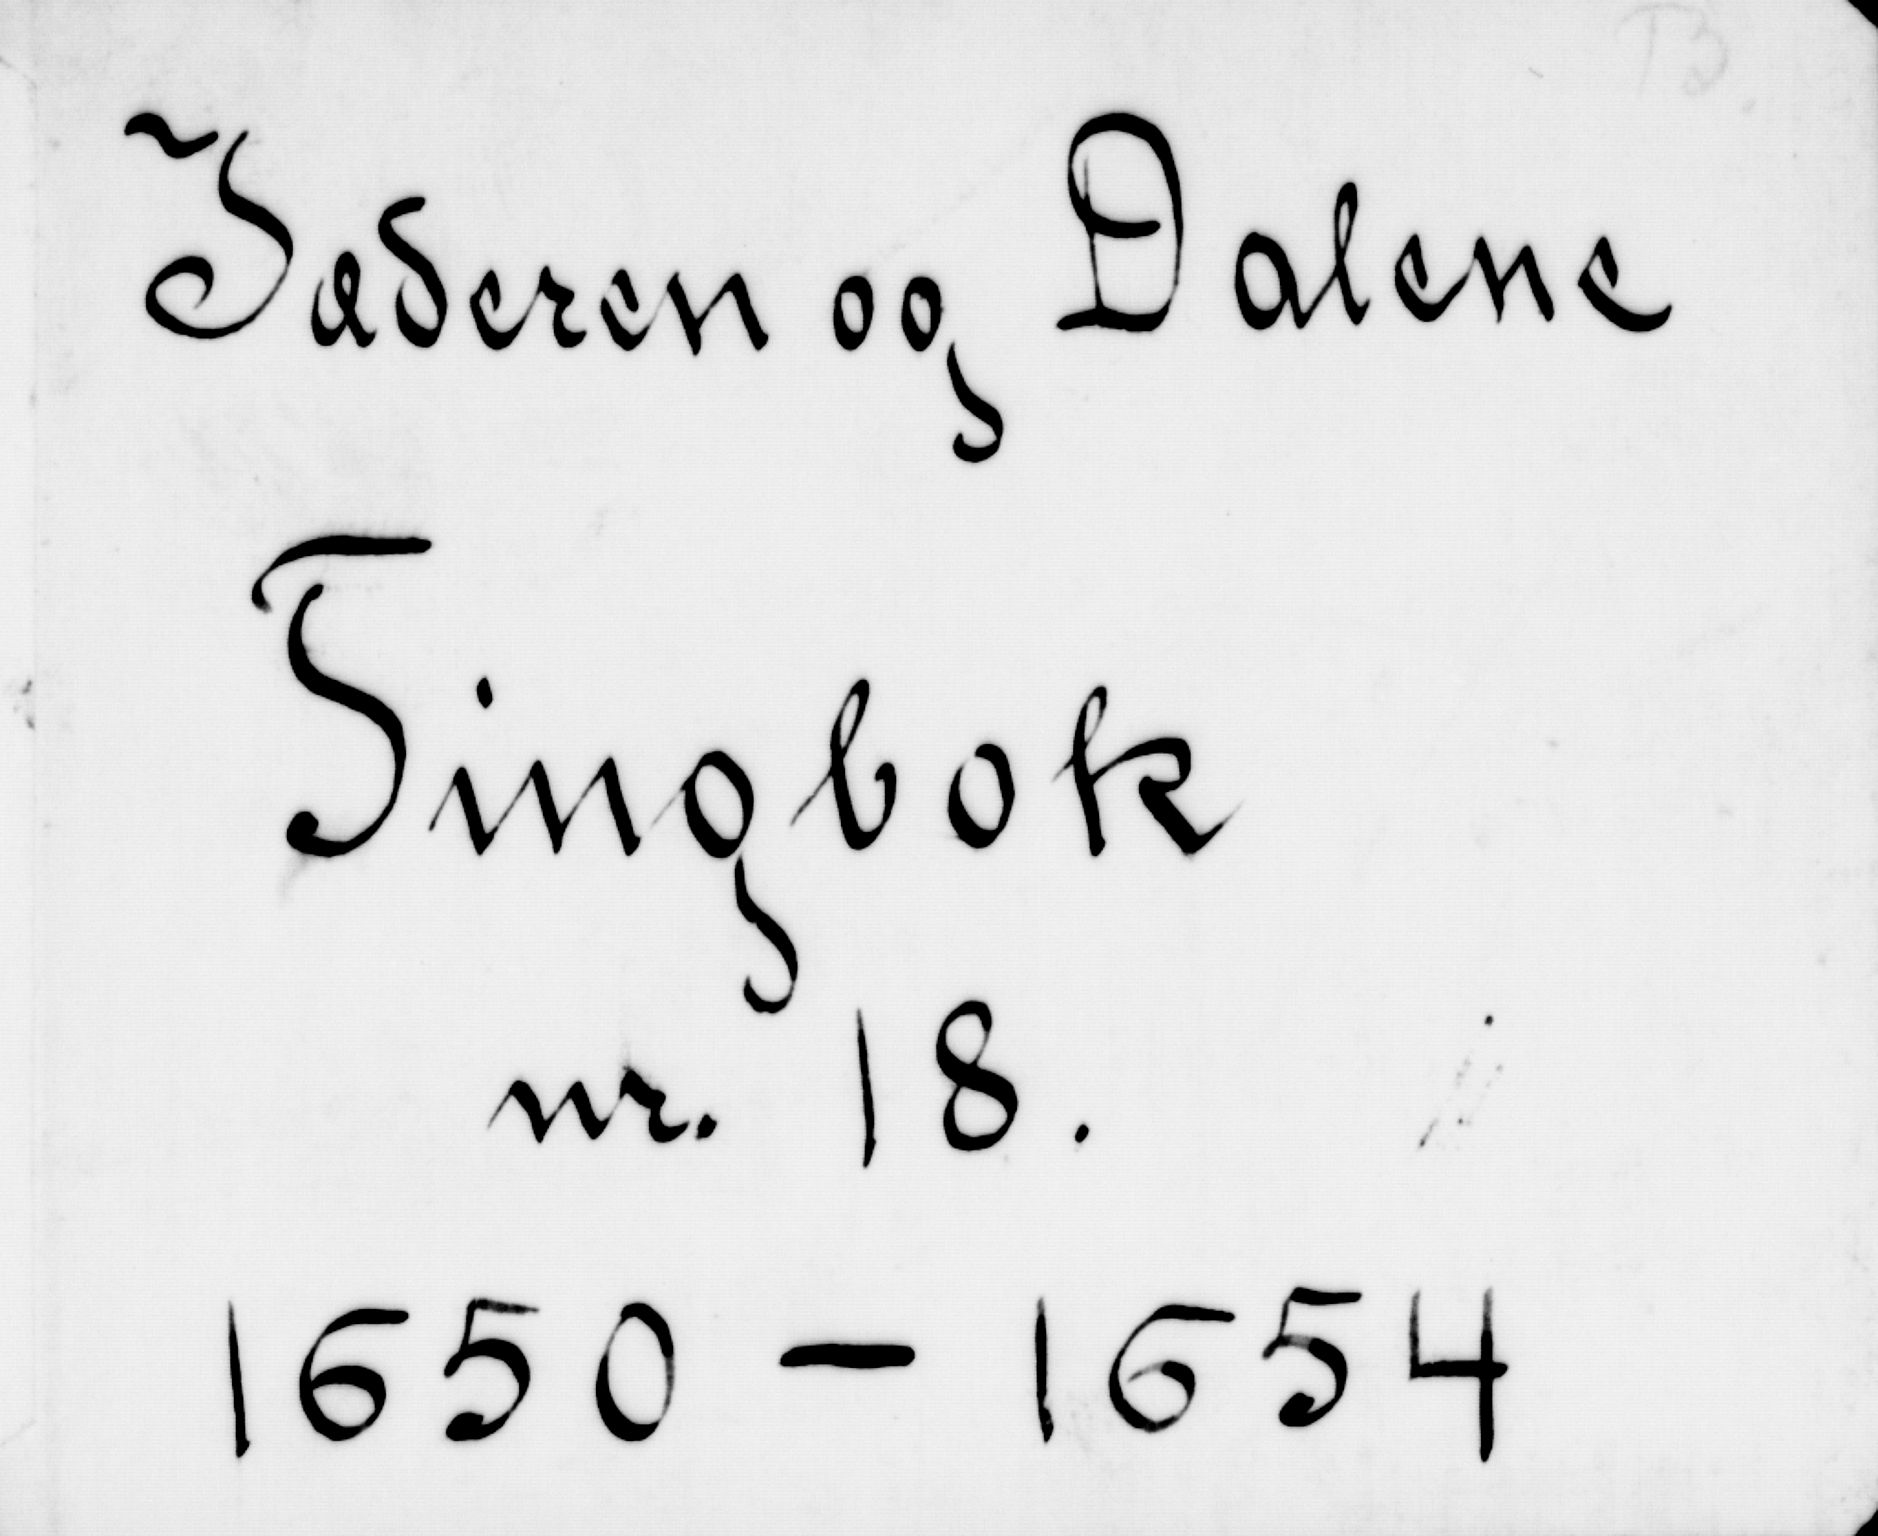 Jæderen og Dalene
Tingbok
nr. 18.
1650 — 1654